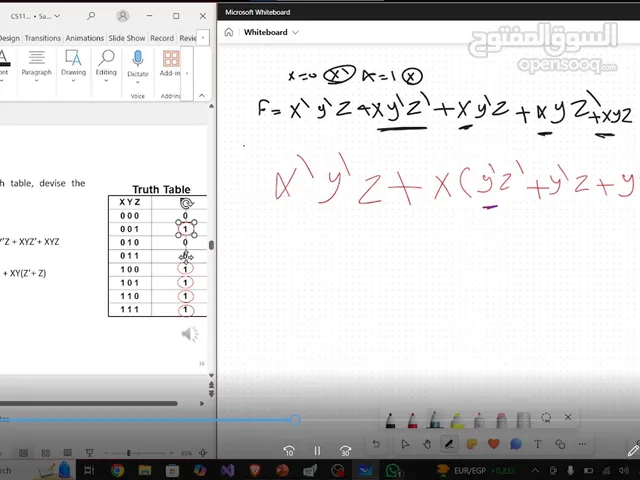 CS11... • Sa...
Design Transitions Animations Slide Show Record Review
Paragraph Drawing Editing Dictate Add-ins
Voice Add-ins
th table, devise the
'Z + XYZ'+ XYZ
+ XY(Z'+ Z)
Truth Table
X Y Z
0 0 0 0
0 0 1 1
0 1 0 0
0 1 1
1 0 0 1
1 0 1 1
1 1 0 1
1 1 1 1
16
Microsoft Whiteboard
Whiteboard
السوق المفتوح
opensooq.com
x=0 x' x=1 x
F = x'y'z + xy'z' + xy'z + xyz' + xyz
x'y'z + x(y'z' + y'z + y
otes
10 30
earch
EUR/EGP +0,23%